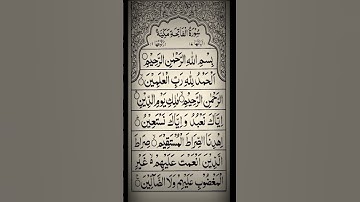 سُوْرَةُ الْفَاتِحَةِ مَكِّيَّةٌ
بِسْمِ اللهِ الرَّحْمٰنِ الرَّحِيْمِ
اَلْحَمْدُ لِلّٰهِ رَبِّ الْعٰلَمِيْنَ
الرَّحْمٰنِ الرَّحِيْمِ مٰلِكِ يَوْمِ الدِّيْنِ
اِيَّاكَ نَعْبُدُ وَ اِيَّاكَ نَسْتَعِيْنُ
اِهْدِنَا الصِّرَاطَ الْمُسْتَقِيْمَ صِرَاطَ
الَّذِيْنَ اَنْعَمْتَ عَلَيْهِمْ غَيْرِ
الْمَغْضُوْبِ عَلَيْهِمْ وَلَا الضَّآلِّيْنَ